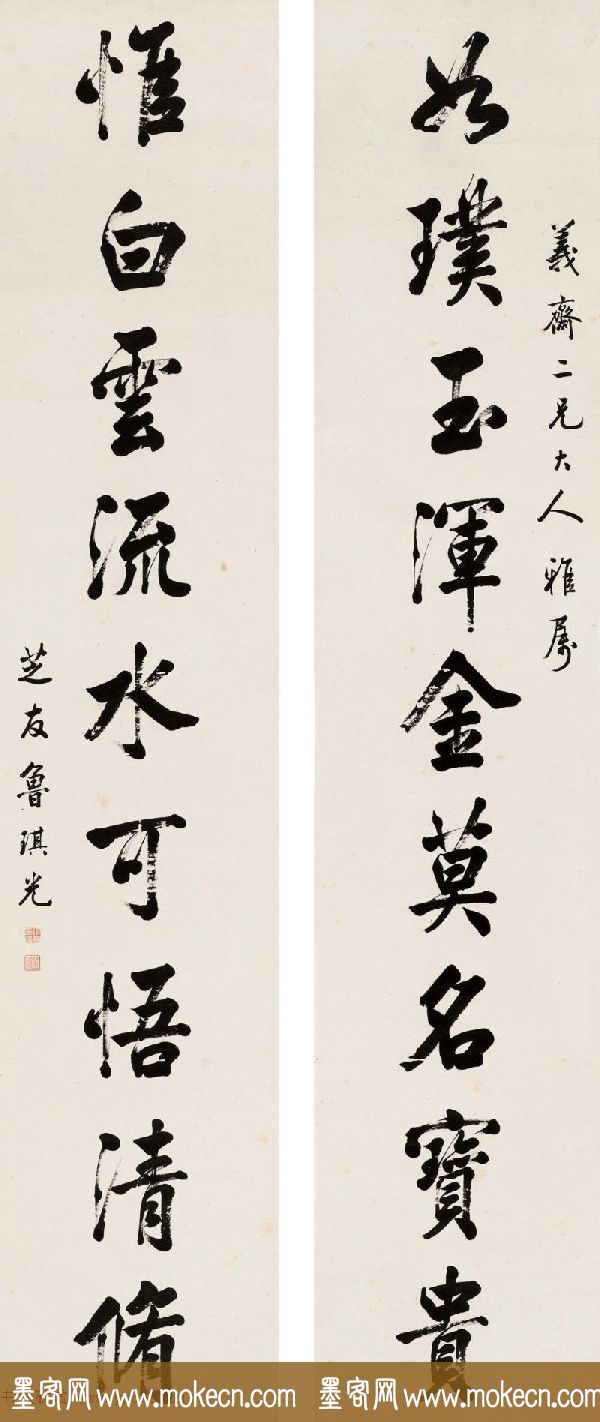 義齋二兄大人雅屬
如璞玉渾金莫名寶貴
惟白雲流水可悟清脩
芝友魯琪光
墨客网 www.mokecn.com
墨客网 www.mokecn.com